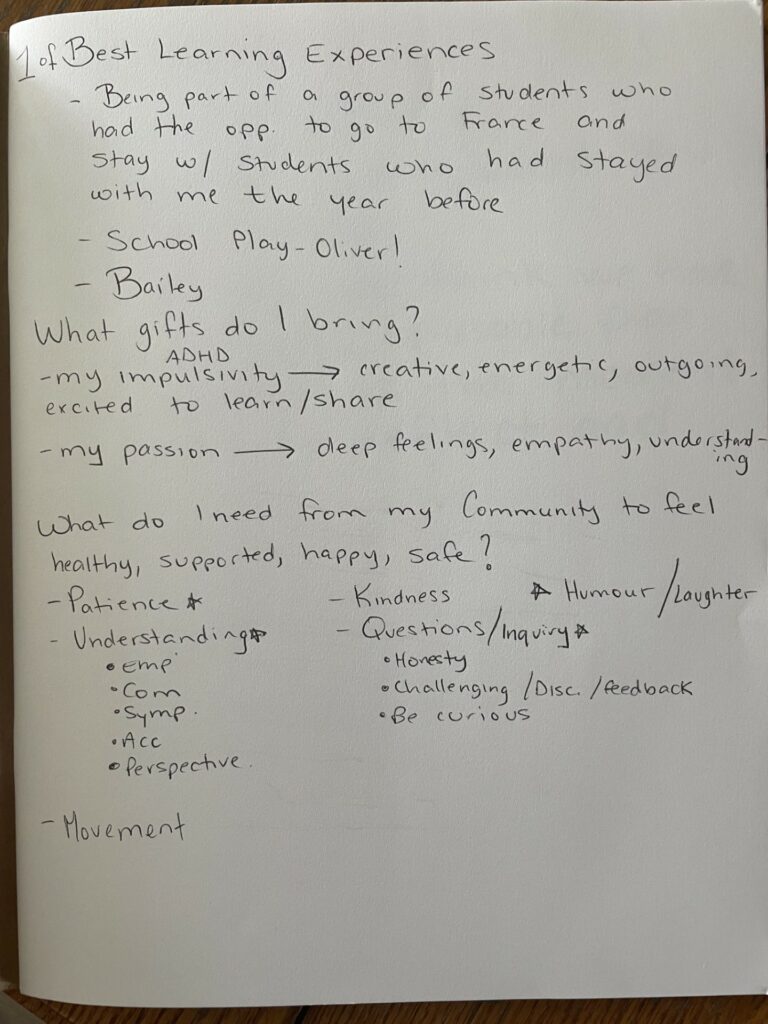 1 of Best Learning Experiences
- Being part of a group of students who
had the opp. to go to France and
stay w/ students who had stayed
with me the year before
- School Play - Oliver!
- Bailey
What gifts do I bring?
ADHD
- my impulsivity → creative, energetic, outgoing,
excited to learn/share
- my passion → deep feelings, empathy, understand-
ing
What do I need from my Community to feel
healthy, supported, happy, safe?
- Patience ☆ - Kindness ☆ Humour/Laughter
- Understanding ☆ - Questions/Inquiry ☆
• emp • Honesty
• Com • Challenging /Disc. /feedback
• Symp. • Be curious
• Acc
• Perspective.
- Movement